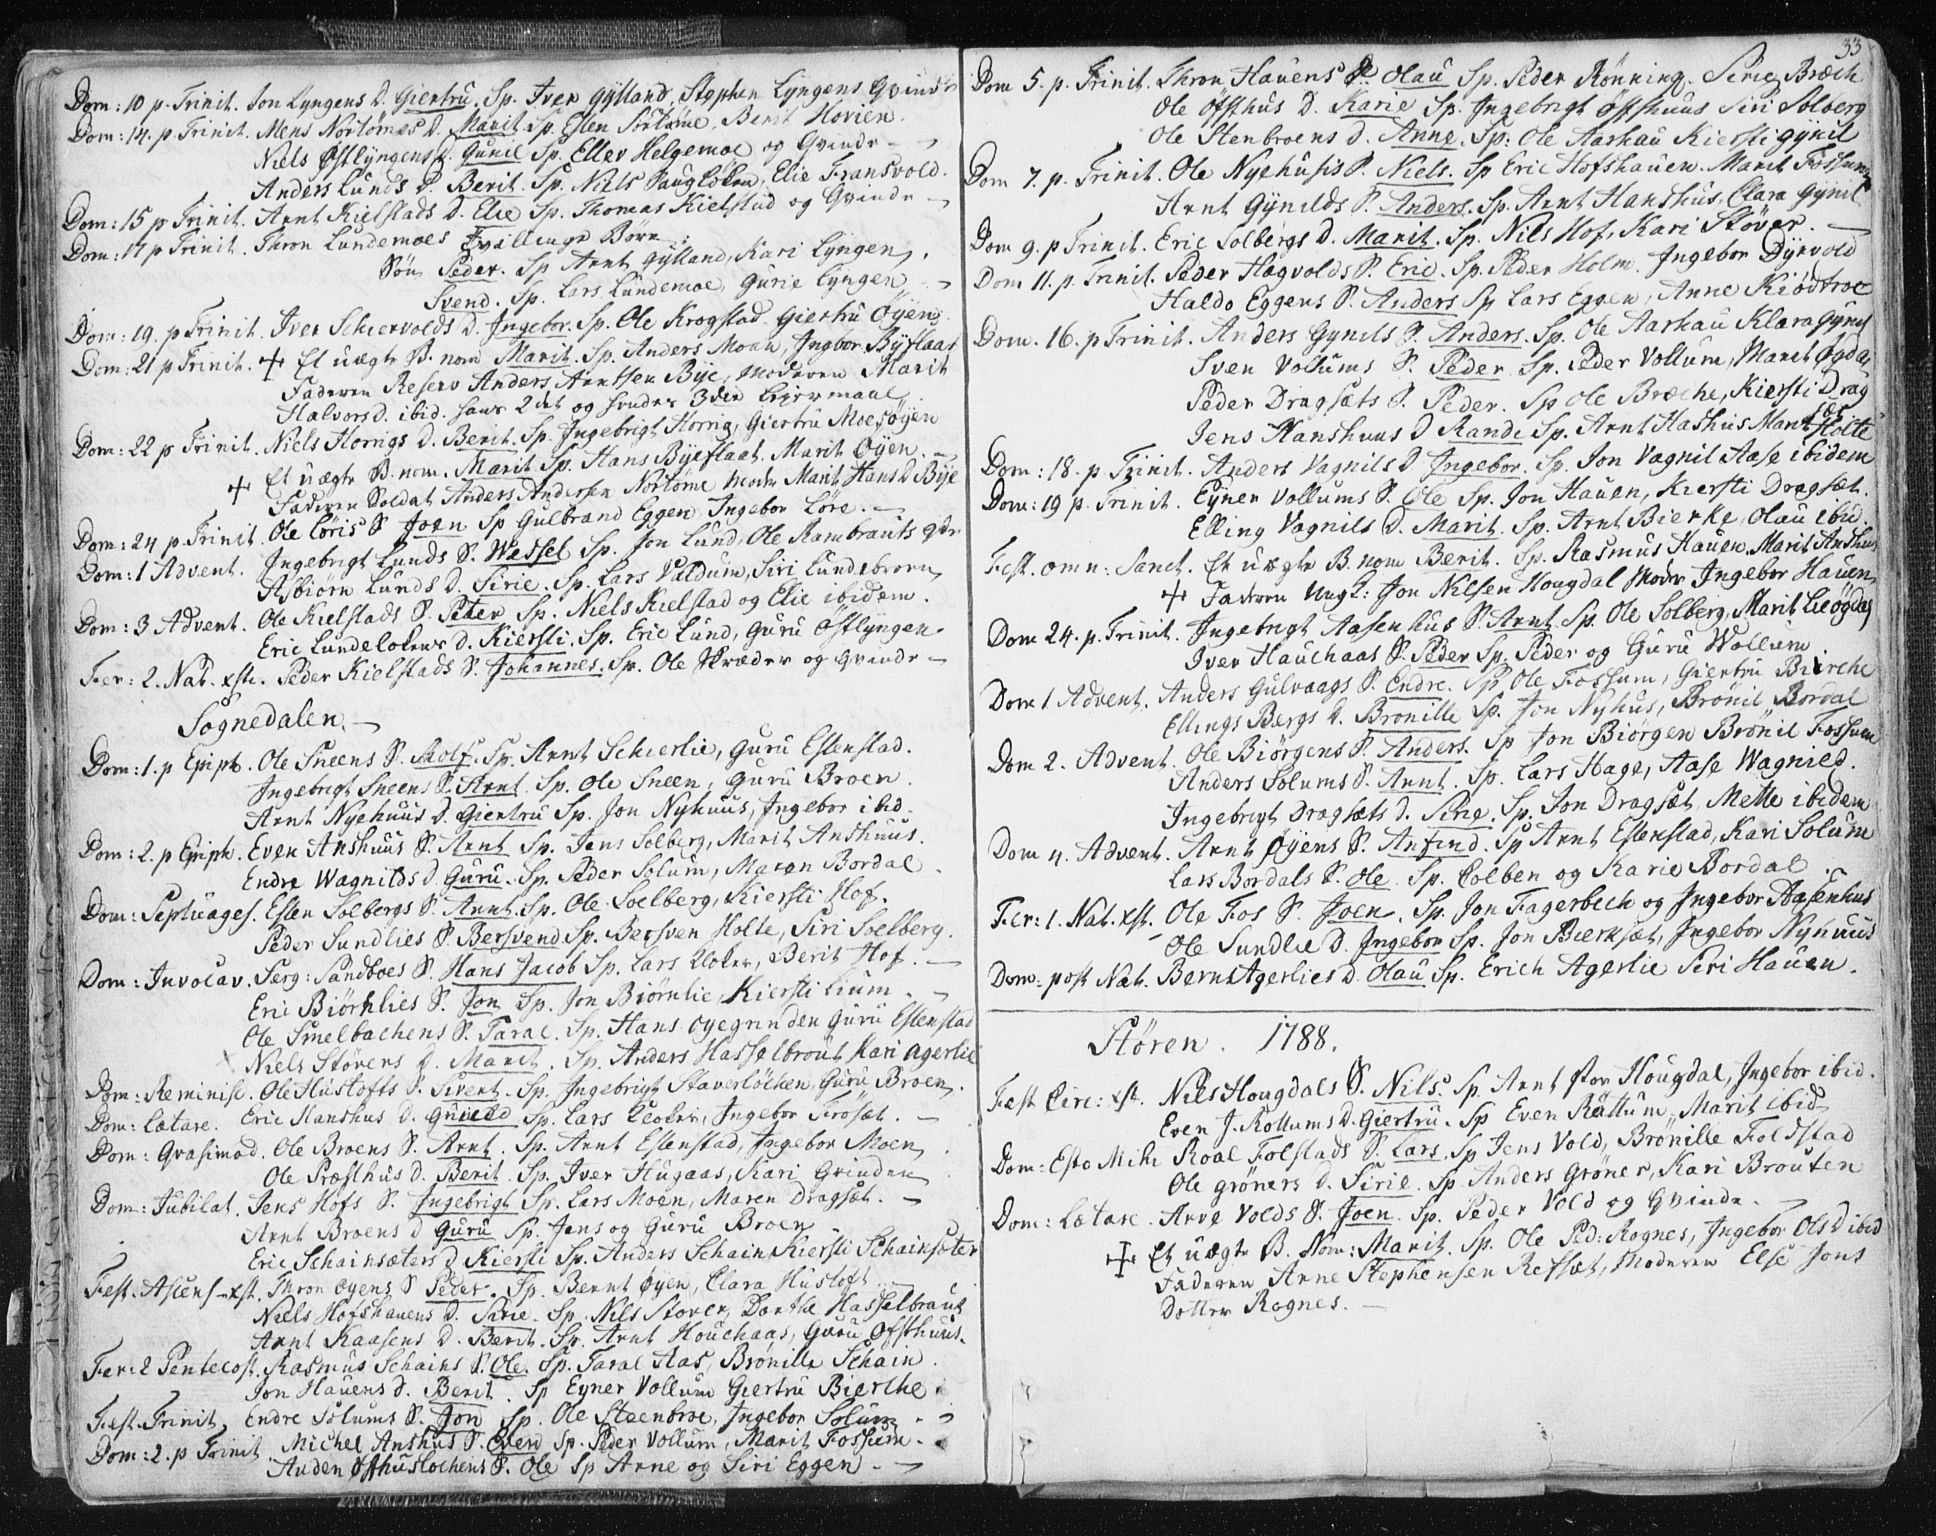 Dom: 10 p. Trinit. Jon Lyngens D. Giertru. Sp. Iver Gylland, Stephen Lyngens Qvinde
Dom: 14. p. Trinit. Mens Nortømes D. Marit. Sp. Esten Sortøme, Berit Hovien.
Niels Østlyngens D. Gunil Sp. Eller Helgemoe og Qvinde
Anders Lunds D. Berit. Sp. Niels Haugløken, Elie Fransvold.
Dom: 15 p Trinit. Arnt Kielstads D. Elie Sp. Thomas Kielstad og Qvinde
Dom: 17 p Trinit. Thron Lundemoes Tvillinge Børn
Søn Peder. Sp Arnt Gylland, Kari Lyngen,
Svend. Sp. Lars Lundemoe, Gurie Lyngen
Dom: 19. p Trinit. Iver Schiervolds D. Ingebor. Sp. Ole Krogstad Giertru Øyen
Dom: 21 p Trinit. + Et uægte B. nom Marit. Sp. Anders Moen, Ingbor Byeflaat
Faderen Reserv Anders Arntsen Bye, Moderen Marit
Halvorsd. ibid. hans 2det og hendes 3die Leiermaal,
Dom: 22 p Trinit. Niels Horrigs D. Berit. Sp. Ingebrigt Horrig, Giertru Moesøyen
+ Et uægte B. nom. Marit Sp. Hans Byeflaat. Marit Øyen.
Faderen Soldat Anders Andersen Nortøme Moder Marit Hans D Bye
Dom: 24 p Trinit. Ole Løris S Joen Sp Gulbrand Eggen Ingebor Løre.
Dom: 1 Advent. Ingebrigt Lunds S. Wessel Sp. Jon Lund, Ole Rambrauts qde
Asbiørn Lunds D. Sirie. Sp. Lars Valdum, Siri Lundebroen
Dom: 3 Advent. Ole Kielstads S. Peter Sp. Niels Kielstad og Elie ibidem.
Eric Lundelokens D. Kiersti. Sp. Eric Lund, Guru Østlyngen
Fer: 2. Nat. xsti. Peder Kielstads S. Johannes. Sp. Ole Skræder og Qvinde
Sognedalen.
Dom: 1. p Epiph. Ole Sneens S. Rolf. Sp. Arnt Schierlie, Guru Estenstad.
Ingebrigt Sneens S. Arnt. Sp. Ole Sneen, Guru Broen.
Arnt Nyehuus D. Giertru Sp. Jon Nyhuus, Ingebor ibid.
Dom: 2. p Epiph. Even Anshuus S. Arnt Sp. Jens Solberg, Marit Anshuus.
Endre Wagnilds D. Guru. Sp. Peder Solum, Maren Bordal
Dom: Septuages. Esten Solbergs S. Arnt. Sp. Ole Soelberg, Kiersti Hof.
Peder Sundlies S. Bersvend Sp. Bersven Holte, Siri Soelberg.
Dom: Invocav. Serg: Sandboes S. Hans Jacob Sp. Lars Kloker, Berit Hof.
Eric Biørnlies S. Jon Sp. Jon Biørnlie, Kiersti Lium
Ole Smelbachens S. Taral. Sp. Hans Øyegrinden Guru Estenstad
Niels Størens D. Marit. Sp. Anders Hasselbrout Kari Agerlie
Dom: Reminisc. Ole Hustofts S. Sivert. Sp. Ingebrigt Staverløcken, Guru Broen,
Dom: Lætare. Eric Hanshus D. Guneld Sp. Lars Kloker, Ingebor Frøset.
Dom: Qvasimod. Ole Broens S. Arnt. Sp. Arnt Estenstad, Ingebor Moen
Ole Præsthus D. Berit. Sp. Iver Hugaas, Kari Grinden
Dom: Jubilat. Jens Hofs S. Ingebrigt Sp. Lars Moen, Maren Dragsæt.
Arnt Broens D Guru Sp. Jens og Guru Broen
Eric Schainsæters D Kiersti Sp. Anders Schain, Kiersti Schainsæter
Fest. Ascens. xst. Thron Øyens S Peder. Sp. Bernt Øyen, Clara Hustoft
Niels Hofshauens D. Sirie. Sp. Nils Støver, Dorthe Hasselbraut
Arnt Kaasens D. Berit. Sp. Arnt Houchaas, Guru Ofsthuus.
Fer: 2 Pentecost. Rasmus Schains S. Ole. Sp. Taral Aas, Brønille Schain.
Jon Hauens D. Berit. Sp Eyner Vollum Giertru Bierche
Fest. Trinit. Endre Solums S. Jon Sp. Ole Steenbroe, Ingebor Solum
Dom: 2. p Trinit Michel Anshus S. Even Sp. Peder Vollum, Marit Fossum.
Auden Ofthuslochens S. Ole Sp Arne og Siri Eggen
33
Dom 5. p. Trinit. Thron Hauens D. Olau Sp. Peder Rønning. Serie Bræch
Ole Øfsthus D. Karie Sp. Ingebrigt Øfsthuus Siri Solberg
Ole Stenbroens D. Anne. Sp: Ole Aarhau Kiersti Gynil
Dom 7. p. Trinit. Ole Nyehusis S. Niels. Sp Eric Hofshauen. Marit Fossum
Arnt Gynilds S. Anders. Sp. Arnt Hanshus, Clara Gynil
Dom 9. p Trinit. Eric Solbergs D. Marit. Sp. Nils Hof, Kari Støver.
Dom 11. p. Trinit. Peder Hægvolds S. Eric. Sp. Peder Holm. Ingebor Dyrvold
Haldo Eggens S. Anders Sp Lars Eggen, Anne Kiødtroe
Dom. 16. p Trinit. Anders Gynils S. Anders. Sp. Ole Aarhau Klara Gynil
Sven Vollums S. Peder Sp. Peder Vollum, Marit Øgdal
Peder Dragsæts S. Peder. Sp Ole Bræche, Kiersti Dragsæt
Jens Hanshuus D Rande Sp. Arnt Hashus Marit Holte
Dom: 18. p Trinit. Anders Vagnils D Ingebor. Sp. Jon Vagnil Aase ibidem
Dom: 19 p. Trinit. Eyner Vollums S. Ole Sp. Jon Hauen, Kiersti Dragsæt.
Elling Vagnils D. Marit. Sp. Arnt Bierke, Olau ibid.
Fest. omn: Sanct. Et uægte B. nom Berit. Sp. Rasmus Hauen. Marit Anshus
+ Faderen Ungk: Jon Nilsen Hougdal Moder Ingebor Hauen
Dom 24. p. Trinit. Ingebrigt Aasenhus S. Arnt. Sp. Ole Solberg, Marit Lieøgdal
Iver Hauchaas S. Peder Sp. Peder og Guru Wollum.
Dom 1 Advent. Anders Gulvaags S. Endre. Sp Ole Fossum, Giertru Bierche
Ellings Bergs D. Bronille Sp. Jon Nyhus, Brønil Bordal
Dom 2. Advent. Ole Biørgens S. Anders. Sp Jon Biørgen Brønil Fossum
Anders Solums S. Arnt. Sp. Lars Hage, Aase Wagnild.
Ingebrigt Dragsæts D. Sirie. Sp. Jon Dragsæt, Mette ibidem
Dom 4. Advent. Arnt Øyens S. Anfind. Sp Arnt Estenstad, Kari Solum
Lars Bordals S. Ole Sp. Colben og Karie Bordal
Fer: 1. Nat. xst. Ole Fos S. Joen. Sp. Jon Fagerbech og Ingebor Aasenhus
Ole Sundlie D. Ingebor Sp. Jon Bierksæt, Ingebor Nyhuus
Dom: post Nat. Bernt Agerlies D. Olau Sp. Erich Agerlie Siri Hauen.
Støren. 1788.
Fest Circ: xst. Nils Hougdals S. Nils. Sp Arnt stor Hougdal, Ingebor ibid.
Even J. Rollums D. Giertru. Sp Even Rollum, Marit ibid
Dom: Esto Mihi Roal Folstads S. Lars. Sp Jens Vold, Brønille Foldstad
Ole Grøners D. Sirie. Sp Anders Grøner, Kari Brouten
Dom: Lætare. Arve Volds S. Joen. Sp. Peder Vold og Qvinde.
+ Et uægte B. Nom: Marit. Sp. Ole Ped: Rognes, Ingebor Ols D ibid
Faderen Arne Stephensen Refsæt, Moderen Else Jons
Dotter Rognes.